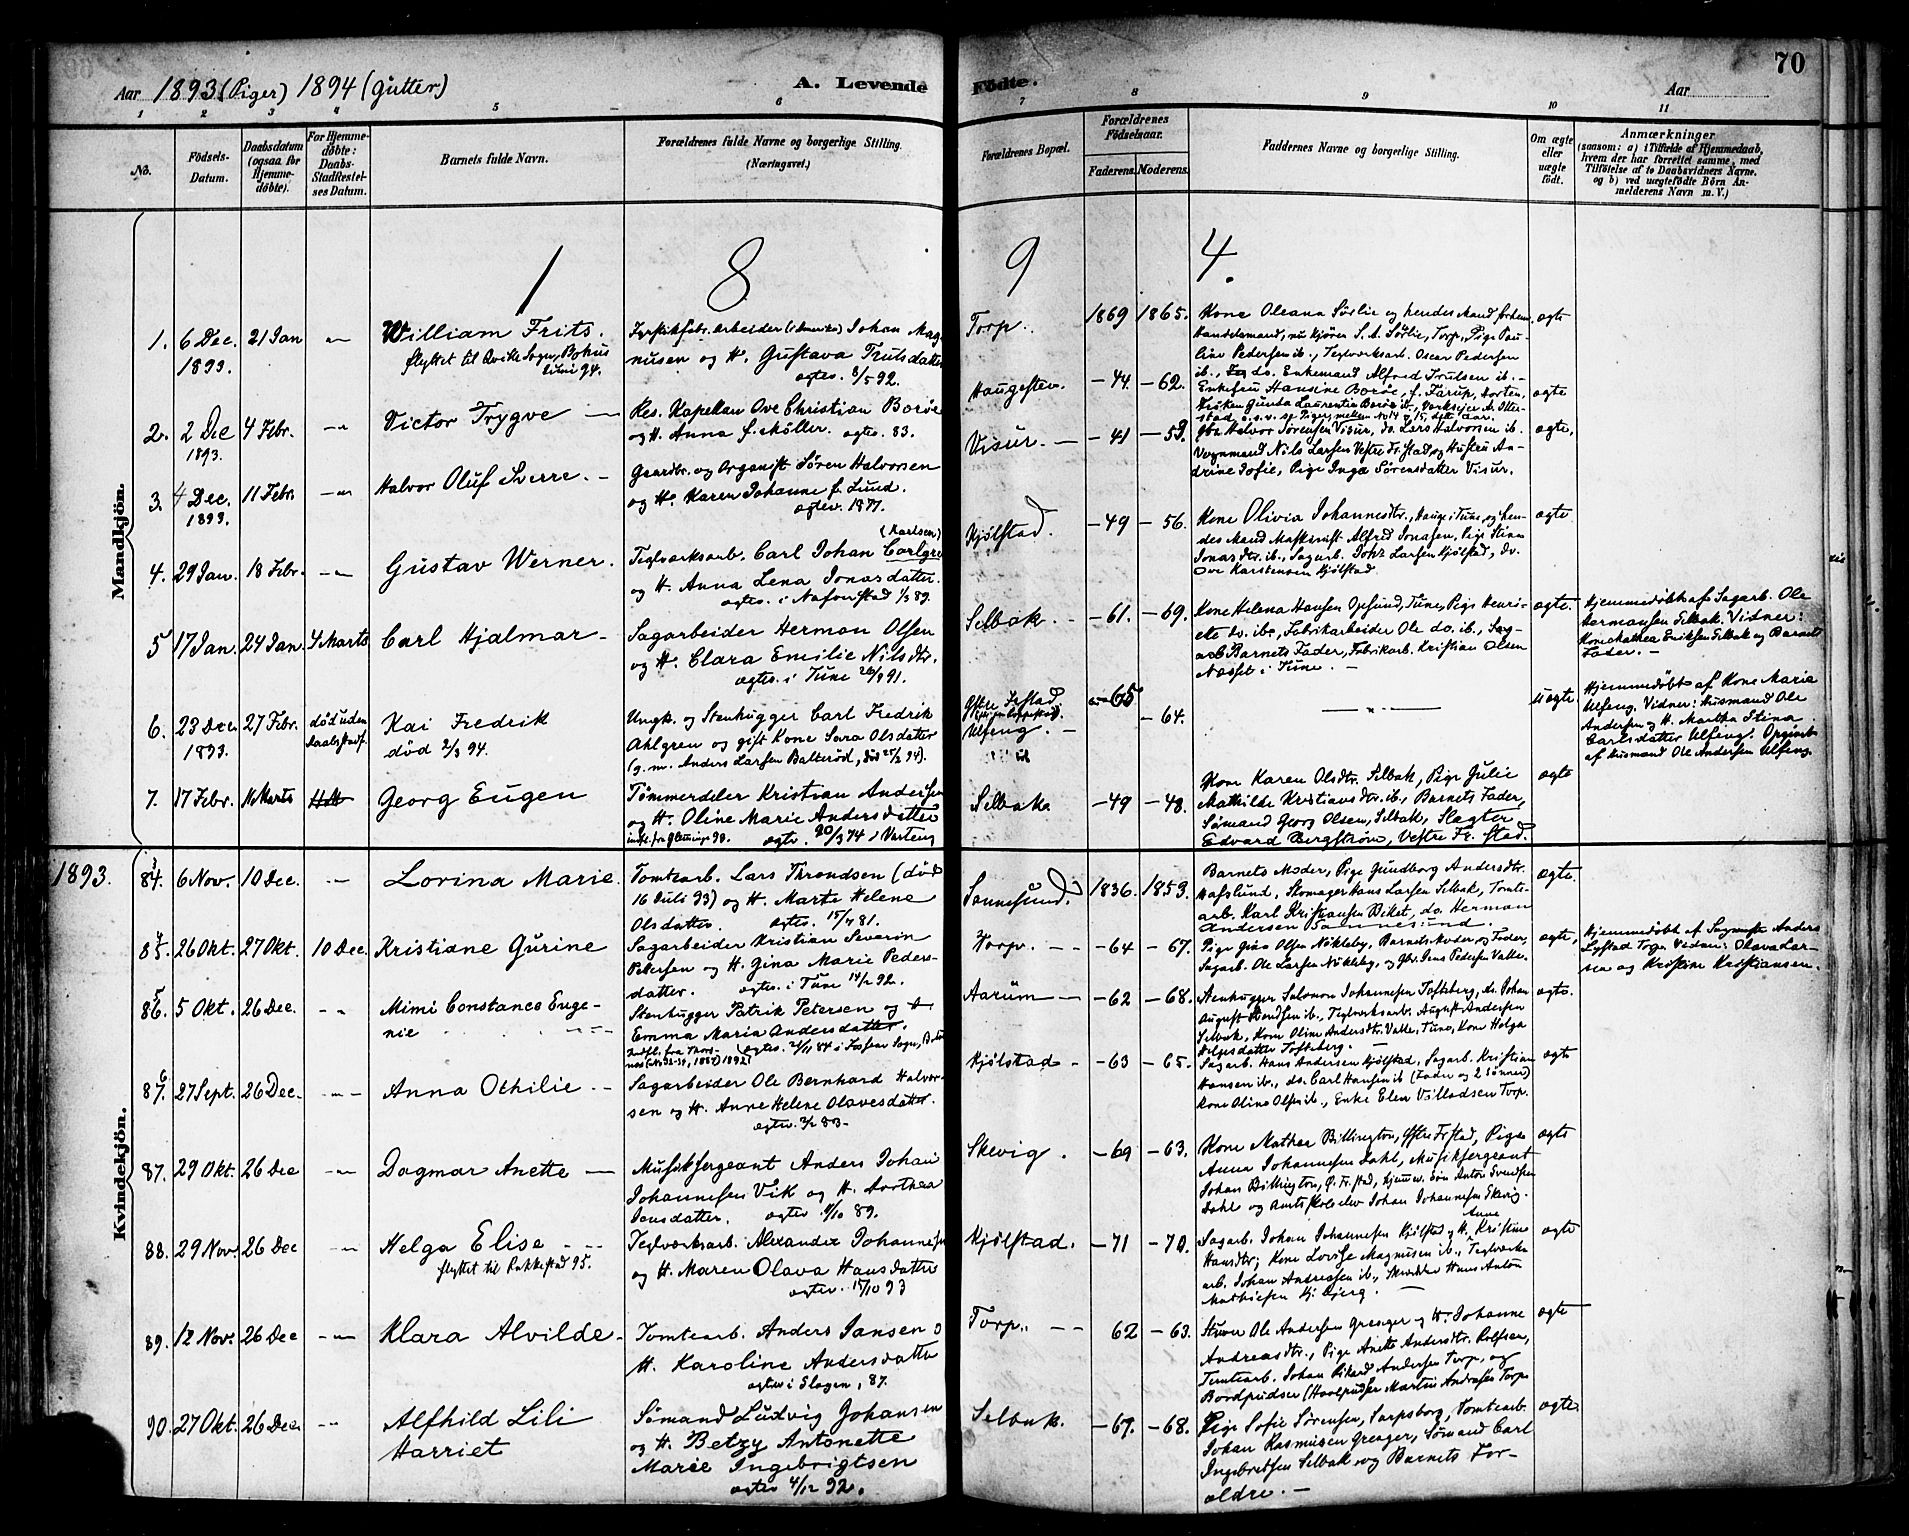 70
Aar 1893 (Piger) 1894 (Gutter)
A. Levende Födte.
Aar
1 2 3 4 5 6 7 8 9 10 11
No.
Födsels-Datum.
Daabsdatum (ogsaa for Hjemme-döbte).
For Hjemme-döbte: Daabs-Stadfæstel-ses Datum.
Barnets fulde Navn.
Forældrenes fulde Navne og borgerlige Stilling. (Næringsvei.)
Forældrenes Bopæl.
Forældrenes Födselsaar.
Faderens. Moderens.
Faddernes Navne og borgerlige Stilling.
Om ægte eller uægte födt.
Anmærkninger
(saasom: a) i Tilfælde af Hjemmedaab, hvem der har forrettet samme, med Tilföielse af to Daabsvidners Navne, og b) ved uægtefödte Börn An-melderens Navn m. V.)
Mandkjön.
1 8 9 4.
1. 6 Dec. 1893. 21 Jan William Frits.
flyttet til Qville Sogn, Bohus
Johan Mag-
nusen og H. Gustava Trulsdatter
ægtev. 8/5 92.
Torp. 1869 1865.
Kone Oleana Sørlie og hendes Mand forhen
Handelsmand, nu Kjører S. A. Sørlie, Torp, Pige Pau-
line Pedersen ib., Teglverksarb. Oscar Pedersen
ib., do. Enkemand Alfred Trulsen ib.
ægte
2. 2 Dec 1893. 4 Febr. Victor Trygve
Res. Kapellan Ove Christian Borøe
og H. Anna f. Møller. ægtev. 83.
Haugesten. -44. -62.
Enkefru Hansine Borøe, f. Farup, Horten,
Frøken Gunda Laurentia Borøe ib.,
ægte
3. 4 Dec. 1893. 11 Febr. Halvor Oluf Sverre.
Gaardbr. og Organist Søren Halvorsen
og H. Karen Johanne f. Lund.
ægtev. 1877.
Visur. -41 -53.
Gbr. Halvor Sørensen Visur, do. Lars Halvorsen ib.
Vognmand Nils Larsen Vestre Fr.stad og Hustru An-
drine Sofie, Pige Inga Sørensdatter Visur.
ægte,
4. 29 Jan. 18 Febr. Gustav Werner.
(Karlsen)
Teglverksarb. Carl Johan Carlgre
og H. Anna Lena Jonasdatter.
Kjølstad. -49 -56.
Kone Olivia Johannesdtr., Hauge i Tune, og hen-
des Mand Alfred Jonasen, Pige Stina
Jonasdtr. ib., Sagarb. Johs Larsen Kjølstad, do.
Ove Karstensen Kjølstad.
ægte
5 17 Jan. 24 Jan. 4 Marts Carl Hjalmar
Sagarbeider Herman Olsen
og H. Clara Emilie Nilsdtr.
ægtev. i Tune 91.
Selbak. -61. -69.
Kone Helena Hansen Opsund, Tune, Pige Henri-
ette do. ib., Fabrikarbeider Ole do. ib., Sag-
arb Barnets Fader, Fabrikarb. Kristian Olsen
Næsset i Tune.
ægte.
Hjemmedøbt af Sagarb. Ole
Hermansen Selbak. Vidner:
Kone Mathea Eriksen Selbak og Barnets
Fader. -
6. 23 Dec. 1893. 27 Febr. død uden Daabsstadf.
Kai Fredrik
død 2/3 94.
Ungk. og Stenhugger Carl Fredrik
Ahlgren og gift Kone Sara Olsdatter
(g. m. Anders Larsen Balterød, død 25/2 94).
Ulfeng. -65 -64.
uægte.
Hjemmedøbt af Kone Maria
Ulfeng. Vidner: Husmand Ole
Andersen og H. Martha Stina
Carlsdatter Ulfeng. Opgivet
af Husmand Ole Andersen Ulfeng.
7. 17 Febr. 11 Marts Georg Eugen
Tømmerdeler Kristian Andersen
og H. Oline Marie Andersdatter
ægtev. 20/3 74 i Varteig
Selbak -49 -48.
Kone Karen Olsdtr. Selbak, Pige Julie
Mathilde Kristiansdtr. ib., Barnets Fader,
Sømand Georg Olsen, Selbak, Slagter
Edvard Bergstrøm, Vestre Fr.stad.
ægte
Kvindekjön.
1893.
84. 6 Nov. 10 Dec. Lovina Marie.
Tomtearb. Lars Throndsen (død
16 Juli 93) og H. Marte Helene
Olsdatter. ægtev. 15/7 81.
Sannesund. 1836. 1853.
Barnets Moder, Pige Gundborg Andersdtr.
Hafslund, Skomager Hans Larsen Selbak, Tomte-
arb. Karl Kristiansen Beket, do. Herman
Andersen Sannesund.
ægte.
85. 26 Okt. 27 Okt. 10 Dec. Kristiane Gurine
Sagarbeider Kristian Severin
Petersen og H. Gina Marie Peders-
datter. ægtev. i Tune 14/1 92.
Torp. -64 -67.
Pige Gina Olsen Nokleby, Barnets Moder og Fader,
Sagarb. Ole Larsen Nokleby, og Gbr. Jens Pedersen Valle.
ægte,
Hjemmedøbt af Anders
Lystad Torp. Vidner: Olava Lar-
sen og Kristine Kristiansen.
86. 5 Okt. 26 Dec. Mimi Constance Euge-
nie
Stenhugger Patrik Petersen og
Emma Maria Andersdatter.
Aarum -62 -68.
Stenhugger Salomon Johannesen Tofteberg, do. Johan
August ib., Teglverksarb. August Andersen
Selbak, Kone Oline Andersdtr. Valle, Tune, Kone Helga
Helgesdatter Tofteberg.
ægte.
87. 27 Sept. 26 Dec. Anna Othilie
Sagarbeider Ole Bernhard Halvor-
sen og H. Anne Helene Olavesdatter.
ægtev. 83
Kjølstad -63 -65.
Sagarb. Hans Andersen Kjølstad. Sagarb. Kristian
Hansen ib., do. Carl Hansen ib (Fader og 2 Sønner)
Kone Oline Olsen ib., Enke Elen Villadsen Torp.
ægte
87. 29 Okt. 26 Dec Dagmar Anette
Musiksergeant Anders Johan
Johannesen Vik og H. Dorthea
Jensdatter. ægtev. 89.
Skevig. -69 -63.
Kone Mathea Billington, Østre Fr.stad, Pige
Anna Johannesen Dahl, Musiksergeant
Johan Billington, Ø. Fr.stad, hjemv. Søn Anton Svendsen
Dahl og Amtsskoleelev Johan Johannesen Skevig.
ægte
88. 29 Nov. 26 Dec Helga Elise
flyttet til Rakkestad 95.
Teglverksarb. Alexander Johannesen
og H. Maren Olava Hansdatter
ægtev. 15/10 93
Kjølstad. -71 -70.
Sagarb. Johan Johannesen Kjølstad og H. Anne Kristine
Hansdtr; Kone Lovise Magnusen ib., Teglverks-
arb. Johan Andreasen ib., Skrædder Hans Anton
Mathiesen
ægte
89. 12 Nov. 26 Dec Klara Alvilde
Tomtearb. Anders Jansen o
H. Karoline Andersdatter
ægtev i Slagen, 87.
Torp. 62 -63.
Stuver Ole Andersen Greager og H. Johanne
Andreasdtr., Pige Anette Andersdtr. Rolfsøen,
Tomtearb. Johan Rikard Andersen Torp, og
Bordpudser (Høvlpudser Martin Andreasen Torp
ægte
90. 27 Okt. 26 Dec. Alfhild Lili
Harriet
Sømand Ludvig Johansen
og H. Betzy Antonette
Marie Ingebrigtsen
ægtev 4/12 92.
Selbak. -67. -68.
Pige Sofie Sørensen, Sarpsborg, Tomtearb.
Johan Rasmusen Greager, Sømand Carl
Ingebretsen Selbak og Barnets For-
ældre. -
ægte